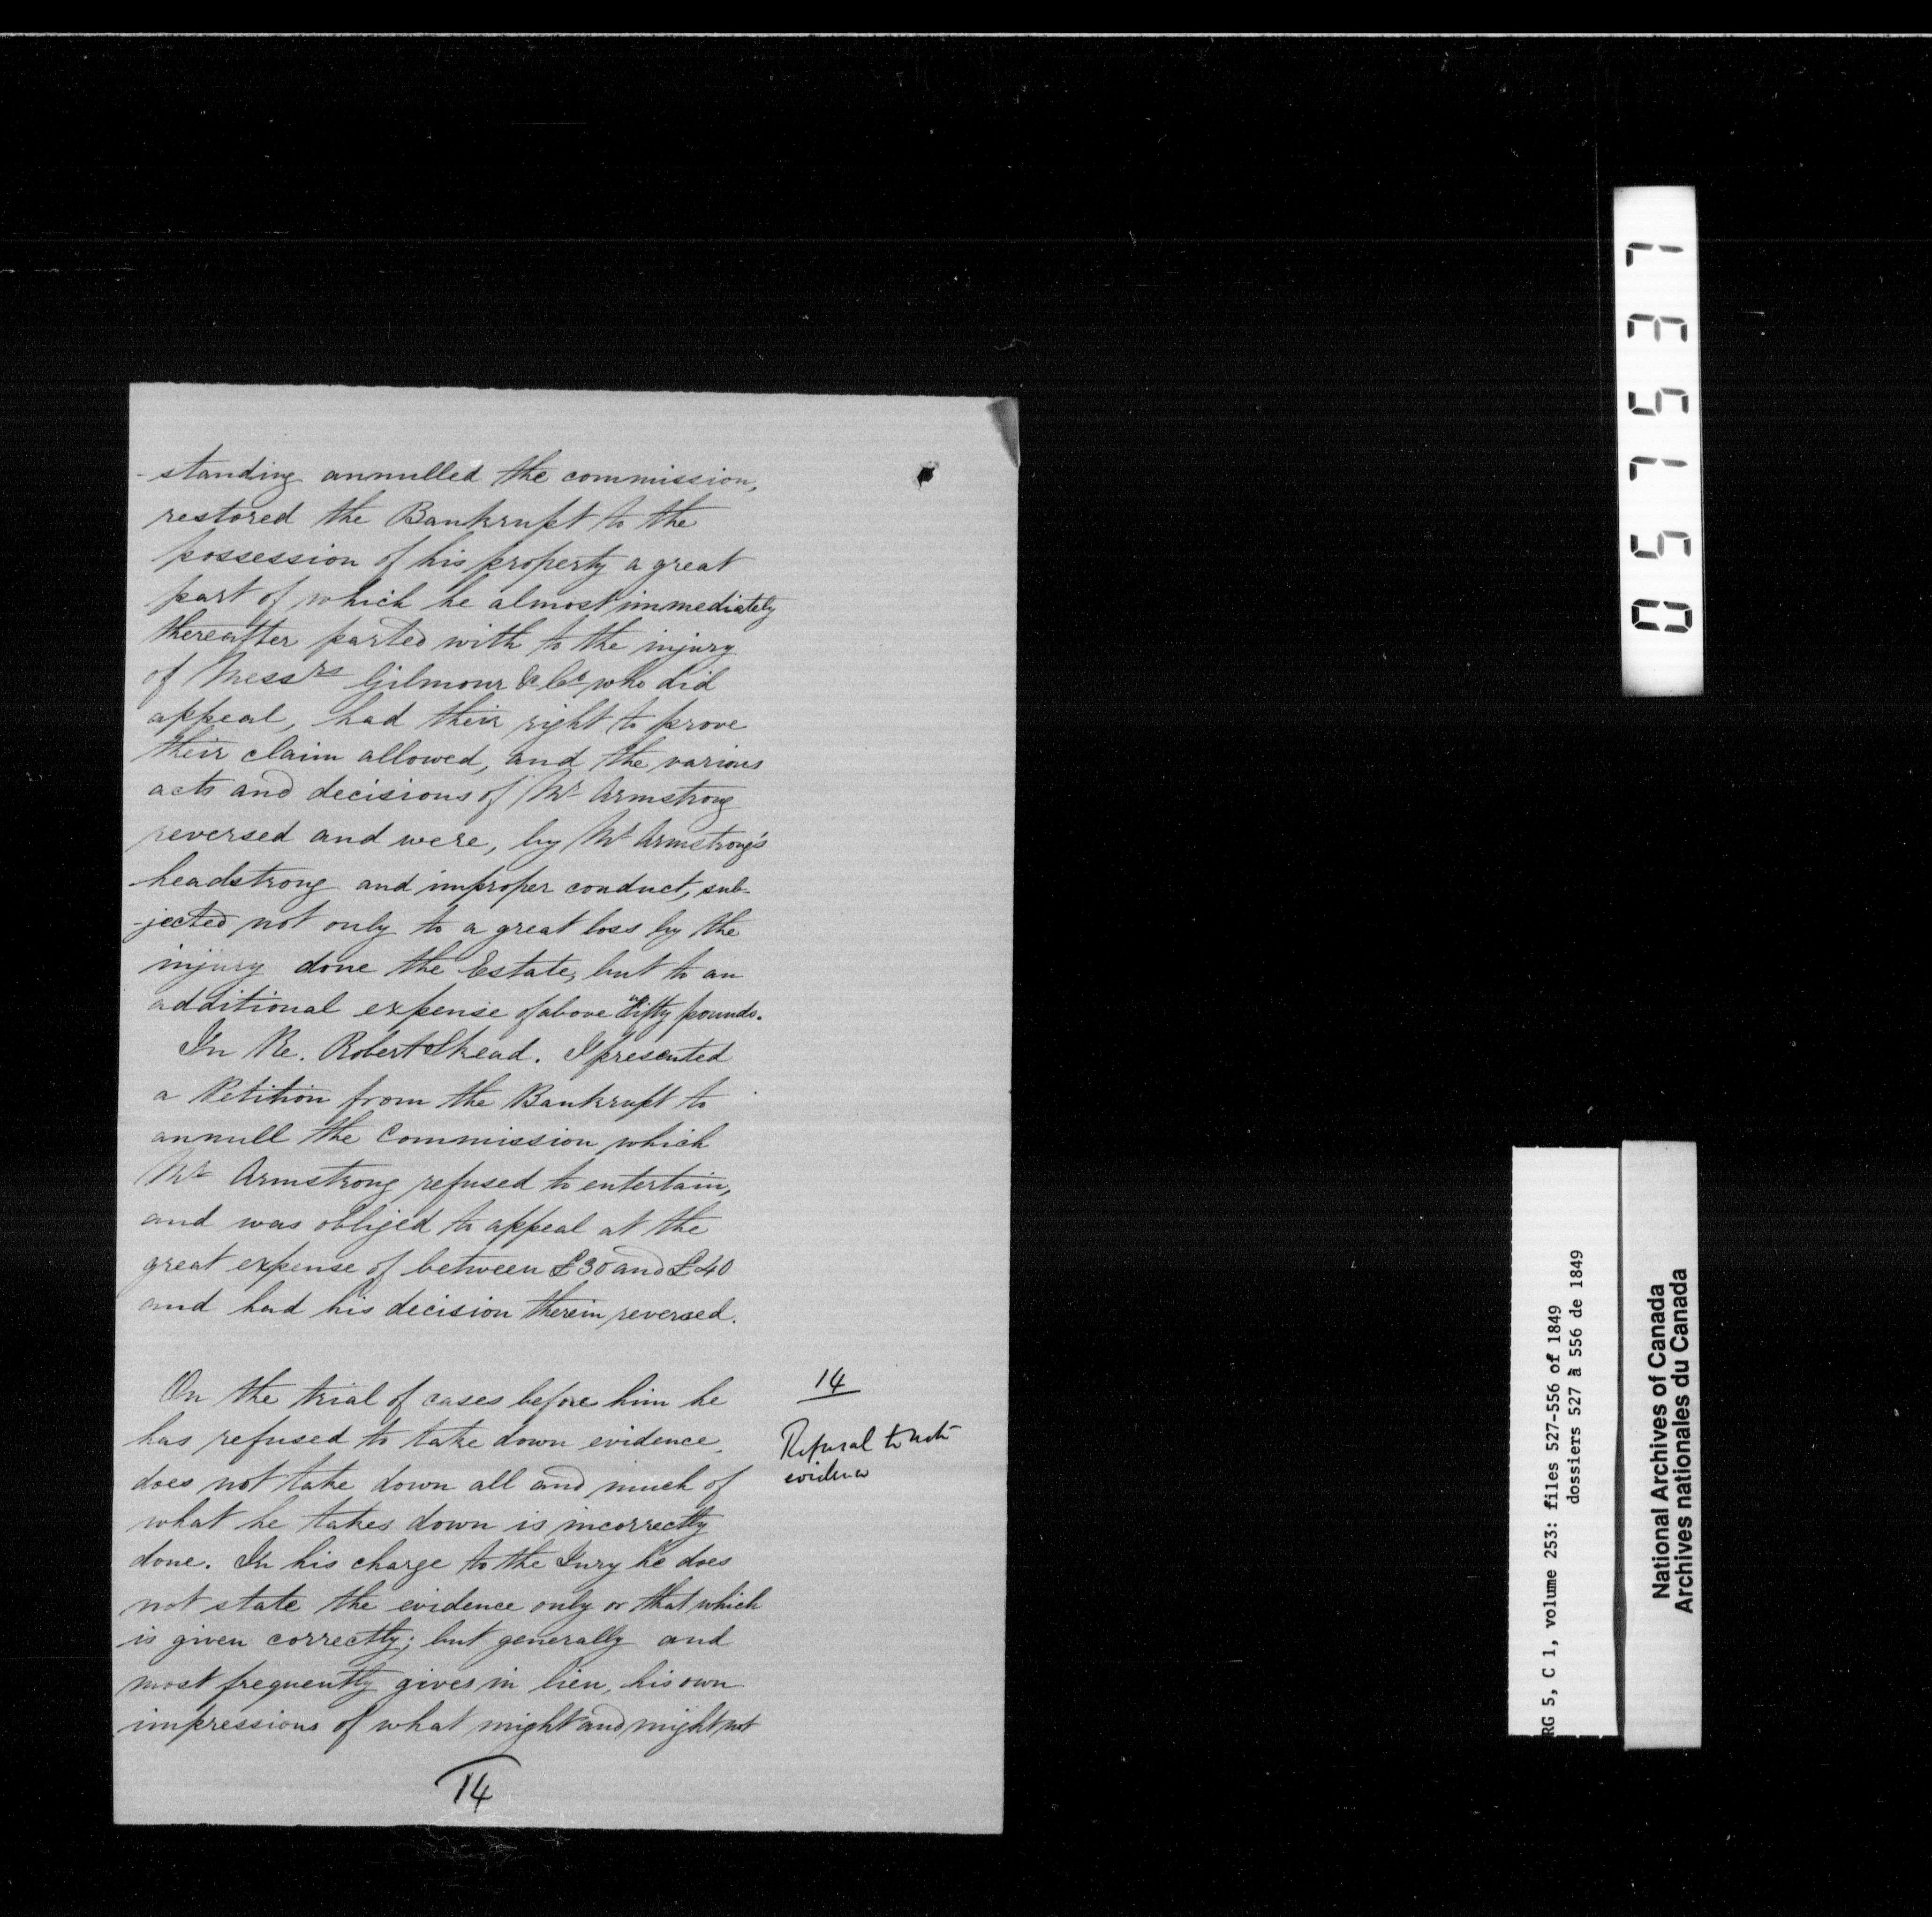 -standing annulled the commission,
restored the Bankrupt to the
possession of his property a great
part of which he almost immediately
thereafter parted with to the injury
of Messrs Gilmour & Co who did
appeal, had their right to prove
their claim allowed, and the various
acts and decisions of Mr Armstrong
reversed and were, by Mr Armstrong's
headstrong and improper conduct, sub-
-jected not only to a great loss by the
injury done the Estate, but to an
additional expense of above fifty pounds.
In Re. Robert Skead. I presented
a Petition from the Bankrupt to
annull the Commission which
Mr Armstrong refused to entertain,
and was obliged to appeal at the
great expense of between £30 and £40
and had his decision therein reversed.
On the trial of cases before him he
has refused to take down evidence,
does not take down all and much of
what he takes down is incorrectly
done. In his charge to the Jury he does
not state the evidence only or that which
is given correctly; but generally and
most frequently gives in lieu, his own
impressions of what might and might not
14
14
Refusal to note
evidence
051537
RG 5, C 1, volume 253: files 527-556 of 1849
dossiers 527 à 556 de 1849
National Archives of Canada
Archives nationales du Canada